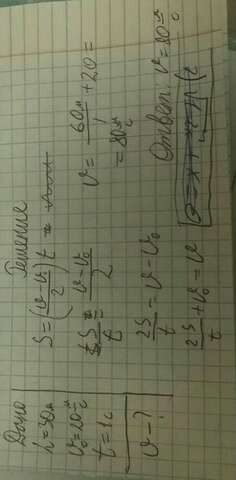 Дано
h=30м
v₀=20 м/с
t=1с
v-?
Решение
S=((v-v₀)/2)t
S/t = (v-v₀)/2
2S/t = v-v₀
2S/t + v₀ = v
v = 60м/1 + 20 =
= 80 м/с
Ответ: v=80 м/с